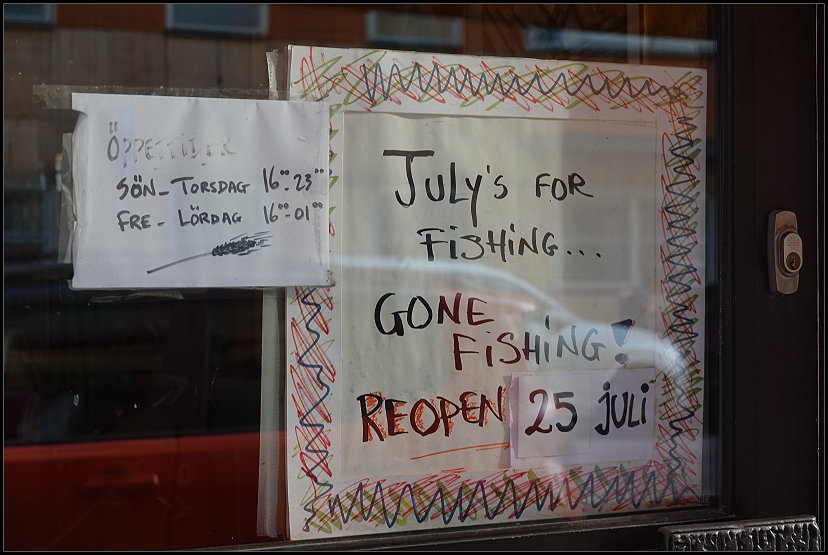 ÖPPETTIDER
SÖN-TORSDAG 16⁰⁰-23⁰⁰
FRE-LÖRDAG 16⁰⁰-01⁰⁰
JULY'S FOR
FISHING...
GONE
FISHING!
REOPEN 25 juli